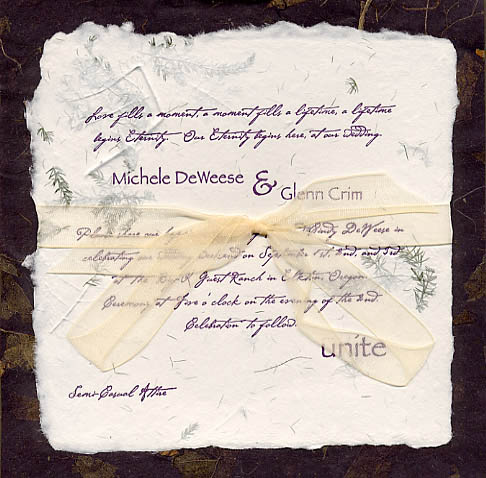 Love fills a moment, a moment fills a lifetime, a lifetime
begins Eternity. Our Eternity begins here, at our wedding.
Michele DeWeese
&
Glenn Crim
Please share our DeWeese in
celebrating our wedding weekend on September 1st, 2nd, and 3rd
at the Guest Ranch in Elkton Oregon
Ceremony at five o'clock on the evening of the 2nd
Celebration to follow.
unite
Semi-Casual Attire